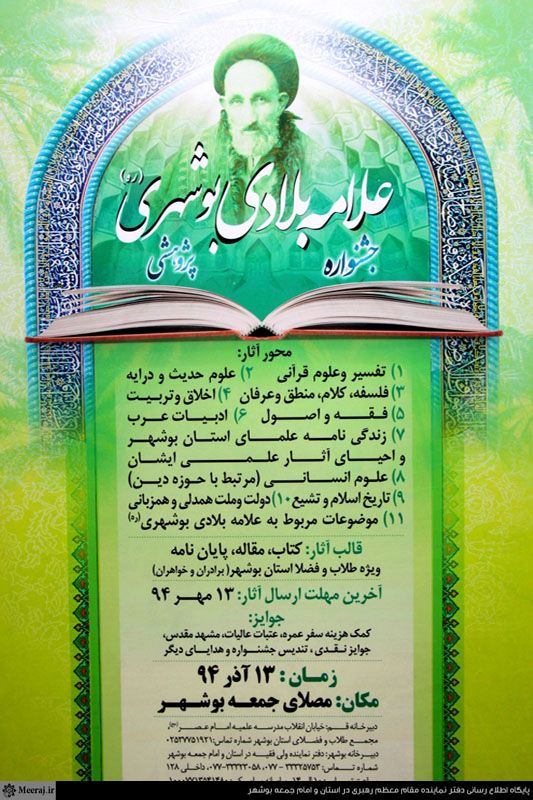 علامه بلادی بوشهری (ره)
جشنواره پژوهشی
محور آثار:
۱) تفسیر وعلوم قرآنی ۲) علوم حدیث و درایه
۳) فلسفه، کلام، منطق وعرفان ۴) اخلاق وتربیت
۵) فقه و اصول ۶) ادبیات عرب
۷) زندگی نامه علمای استان بوشهر
و احیای آثار علمی ایشان
۸) علوم انسانی (مرتبط با حوزه دین)
۹) تاریخ اسلام و تشیع ۱۰) دولت وملت همدلی و همزبانی
۱۱) موضوعات مربوط به علامه بلادی بوشهری (ره)
قالب آثار: کتاب، مقاله، پایان نامه
ویژه طلاب و فضلا استان بوشهر (برادران و خواهران)
آخرین مهلت ارسال آثار: ۱۳ مهر ۹۴
جوایز:
کمک هزینه سفر عمره، عتبات عالیات، مشهد مقدس،
جوایز نقدی، تندیس جشنواره و هدایای دیگر
زمان: ۱۳ آذر ۹۴
مکان: مصلای جمعه بوشهر
دبیرخانه قم: خیابان انقلاب مدرسه علمیه امام عصر (عج)
مجمع طلاب و فضلای استان بوشهر شماره تماس: ۰۲۵۳۷۷۵۱۹۲۱
دبیرخانه بوشهر: دفتر نماینده ولی فقیه در استان و امام جمعه بوشهر
شماره تماس: ۳۳۳۲۵۷۵۳ - ۰۷۷، ۳۳۳۳۳۰۵۸-۰۷۷، داخلی ۱۲۸
پایگاه اطلاع رسانی دفتر نماینده مقام معظم رهبری در استان و امام جمعه بوشهر
Meeraj.ir